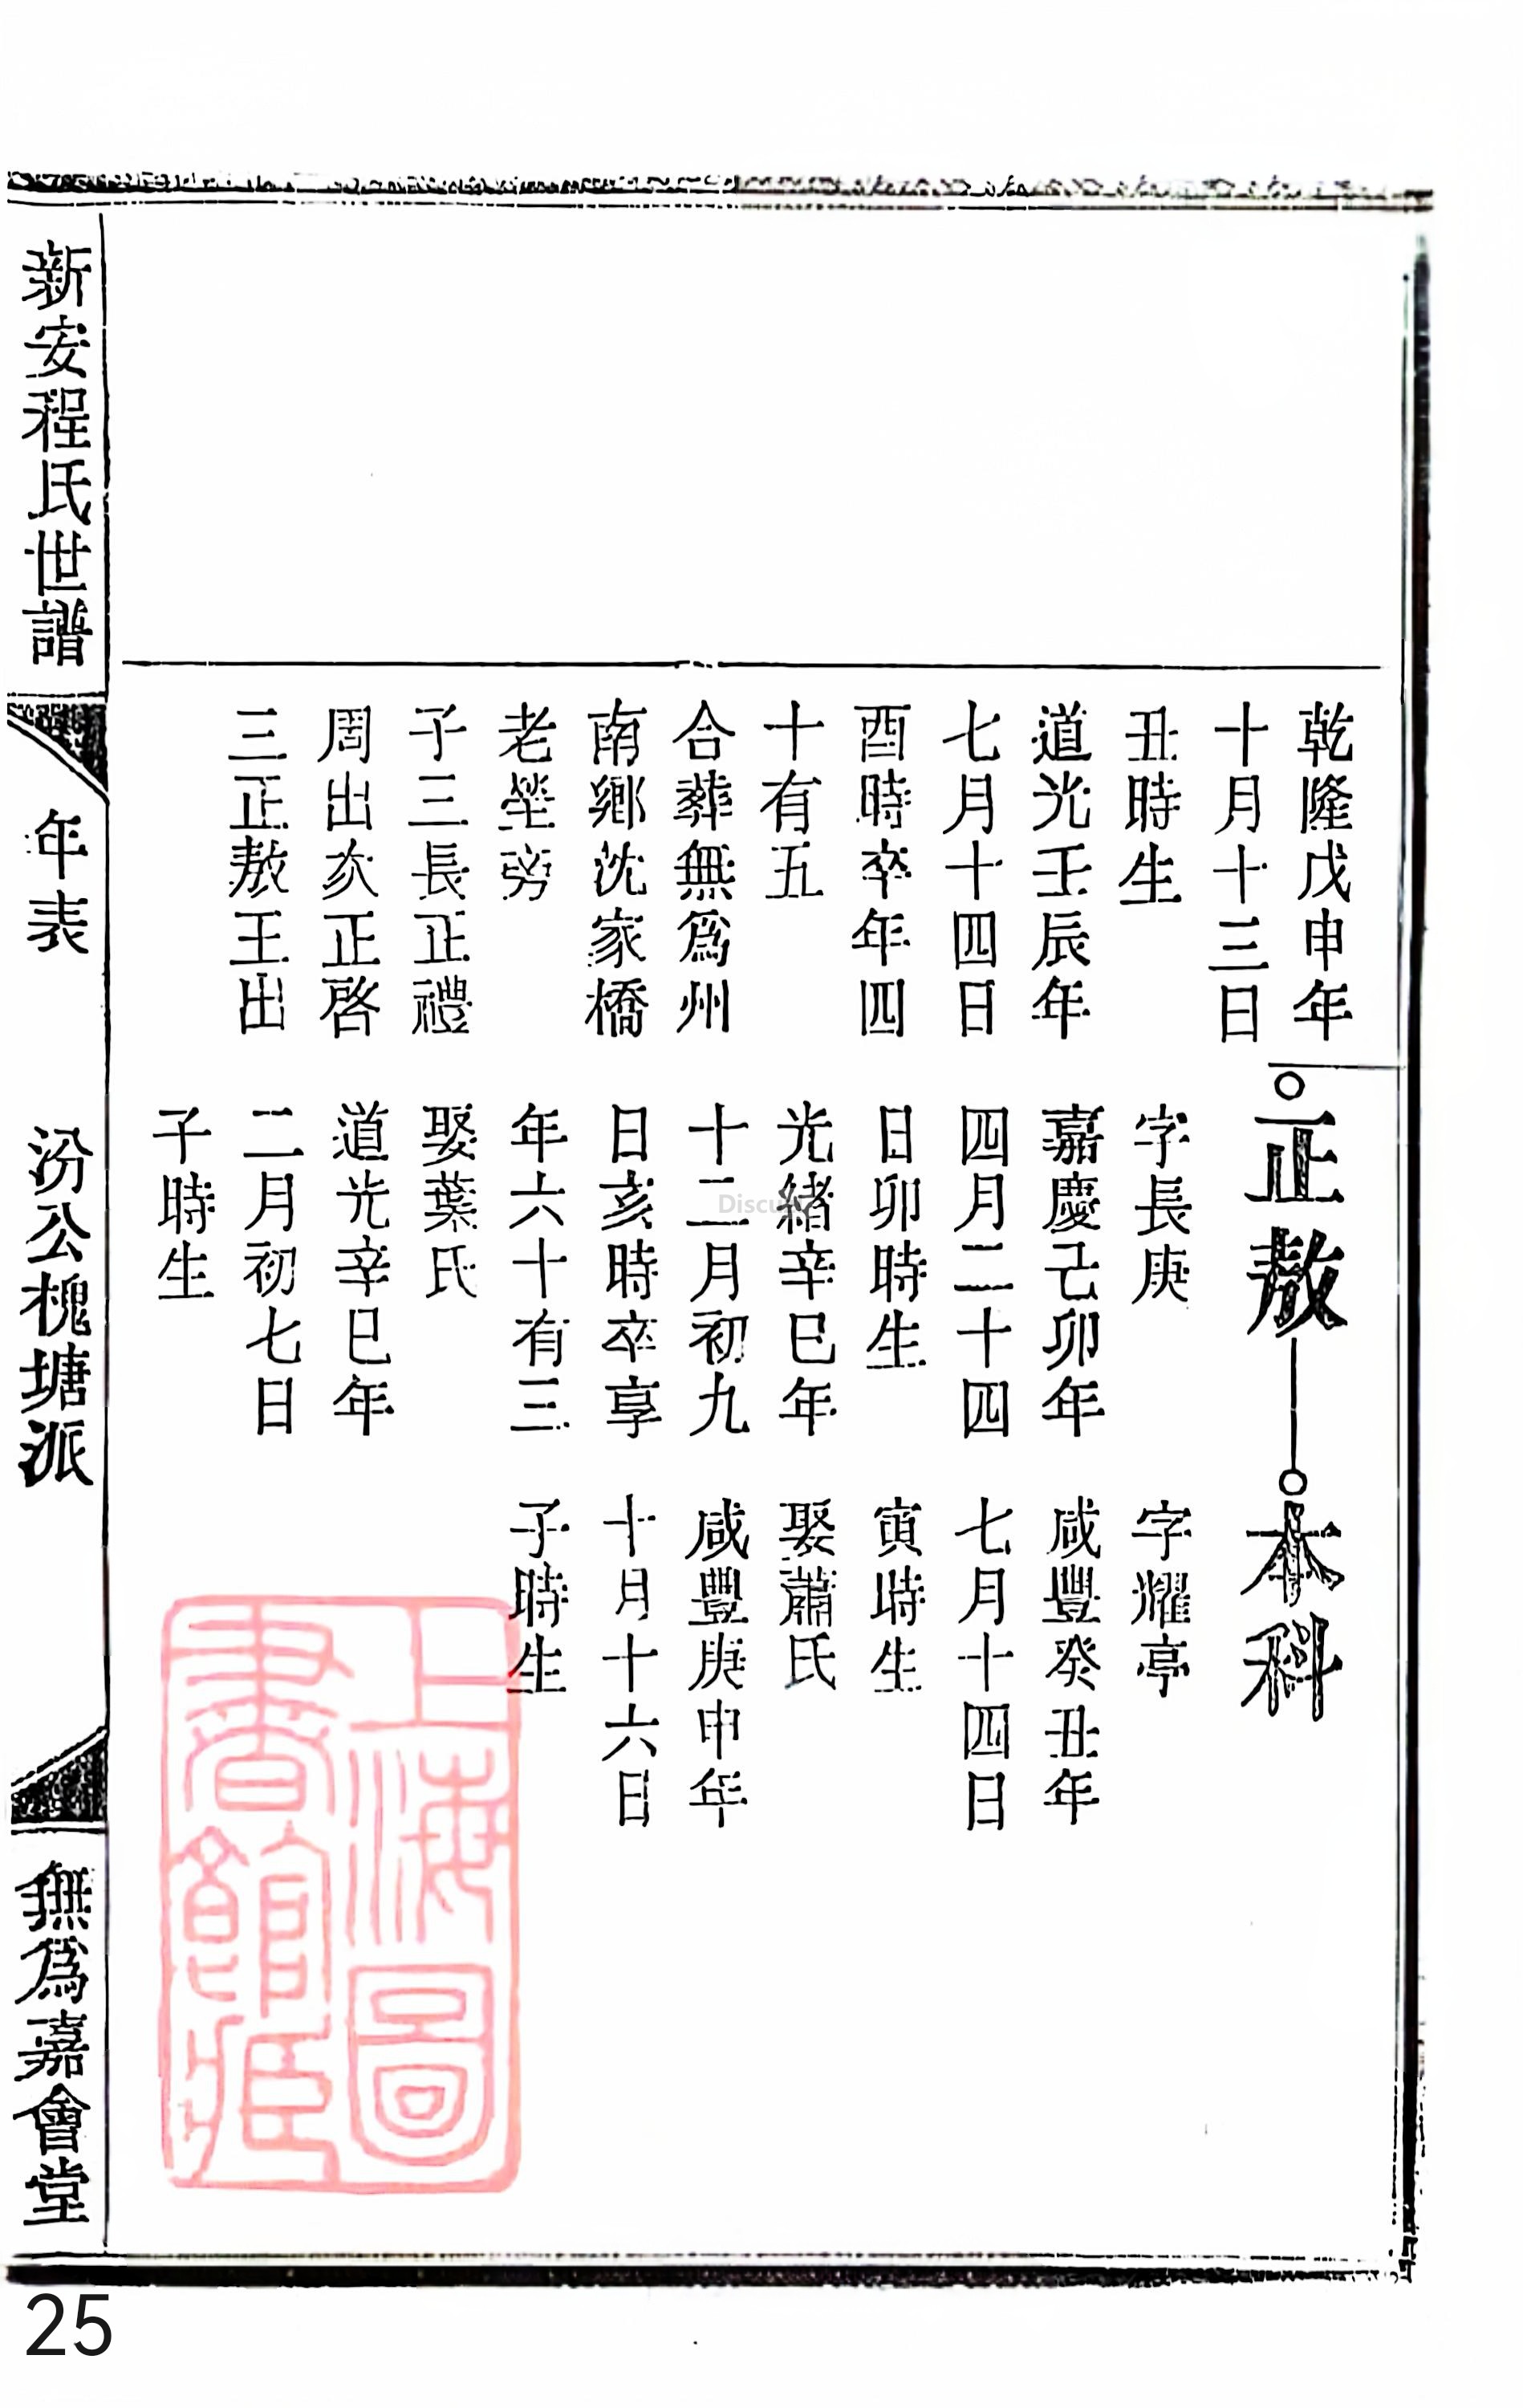 乾隆戊申年
十月十三日
丑時生
道光壬辰年
七月十四日
酉時卒年四
十有五
合葬無爲州
南鄉沈家橋
老塋旁
子三長正禮
周出次正啓
三正敖王出
正敖
字長庚
嘉慶己卯年
四月二十四
日卯時生
光緒辛巳年
十二月初九
日亥時卒享
年六十有三
娶葉氏
道光辛巳年
二月初七日
子時生
本科
字耀亭
咸豐癸丑年
七月十四日
寅時生
娶蕭氏
咸豐庚申年
十月十六日
子時生
上海圖
書館藏
新安程氏世譜
年表
汾公槐塘派
無爲嘉會堂
25